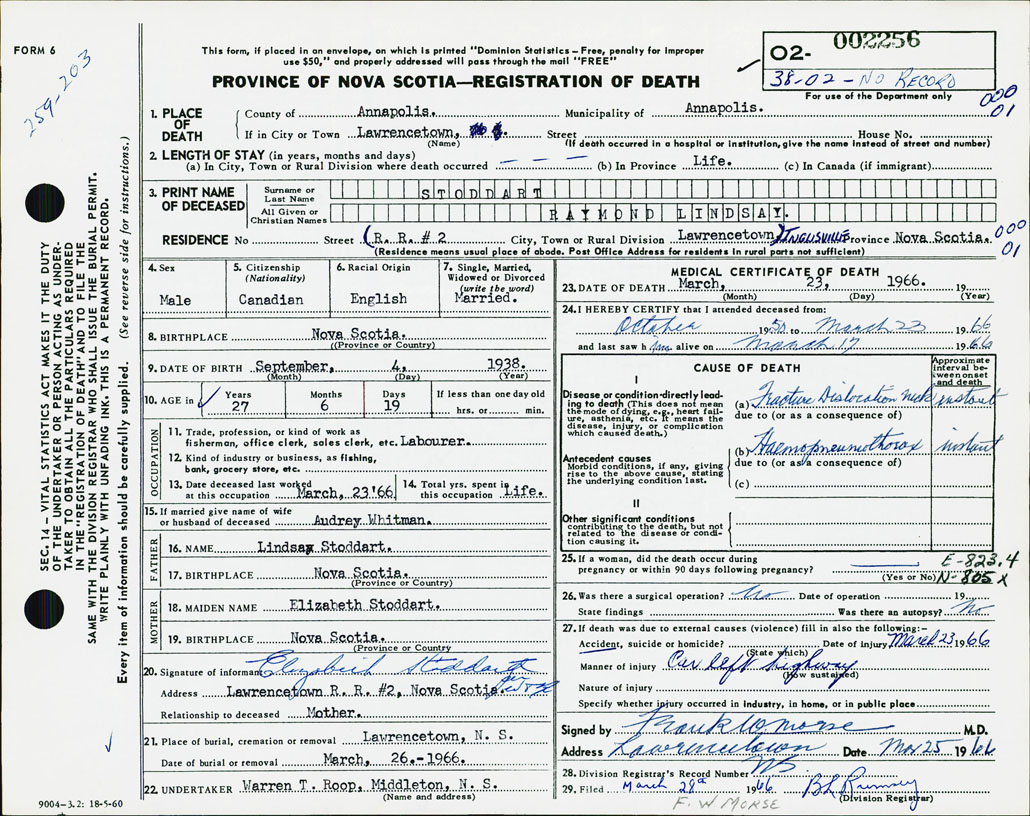 FORM 6
259-203
This form, if placed in an envelope, on which is printed "Dominion Statistics – Free, penalty for improper
use $50," and properly addressed will pass through the mail "FREE"
PROVINCE OF NOVA SCOTIA—REGISTRATION OF DEATH
O2- 002256
38-02 - NO RECORD
For use of the Department only
000
01
1. PLACE OF DEATH
County of Annapolis. Municipality of Annapolis.
If in City or Town Lawrencetown, Street House No.
(Name) (If death occurred in a hospital or institution, give the name instead of street and number)
2. LENGTH OF STAY (in years, months and days)
(a) In City, Town or Rural Division where death occurred — — — (b) In Province Life. (c) In Canada (if immigrant)
3. PRINT NAME OF DECEASED
Surname or Last Name STODDART
All Given or Christian Names RAYMOND LINDSAY.
RESIDENCE No Street (R. R. # 2 City, Town or Rural Division Lawrencetown) INGLISVILLE Province Nova Scotia.
000
01
(Residence means usual place of abode. Post Office Address for residents in rural parts not sufficient)
4. Sex
Male
5. Citizenship
(Nationality)
Canadian
6. Racial Origin
English
7. Single, Married,
Widowed or Divorced
(write the word)
Married.
8. BIRTHPLACE Nova Scotia.
(Province or Country)
9. DATE OF BIRTH September, 4, 1938.
(Month) (Day) (Year)
10. AGE in
Years 27
Months 6
Days 19
If less than one day old
hrs. or min.
OCCUPATION
11. Trade, profession, or kind of work as
fisherman, office clerk, sales clerk, etc. Labourer.
12. Kind of industry or business, as fishing,
bank, grocery store, etc.
13. Date deceased last worked
at this occupation March, 23'66
14. Total yrs. spent in
this occupation Life.
15. If married give name of wife
or husband of deceased Audrey Whitman.
FATHER
16. NAME Lindsay Stoddart.
17. BIRTHPLACE Nova Scotia.
(Province or Country)
MOTHER
18. MAIDEN NAME Elizabeth Stoddart.
19. BIRTHPLACE Nova Scotia.
(Province or Country
20. Signature of informant Elizabeth Stoddart
Address Lawrencetown R. R. #2, Nova Scotia.
Relationship to deceased Mother.
21. Place of burial, cremation or removal Lawrencetown, N. S.
Date of burial or removal March, 26.-1966.
22. UNDERTAKER Warren T. Roop, Middleton, N. S.
(Name and address)
MEDICAL CERTIFICATE OF DEATH
23. DATE OF DEATH March, 23, 1966.
(Month) (Day) (Year)
24. I HEREBY CERTIFY that I attended deceased from:
October 1950 to March 23 1966
and last saw him alive on March 17 1966
CAUSE OF DEATH
Approximate
interval be-
tween onset
and death
I
Disease or condition directly lead-
ing to death (This does not mean
the mode of dying, e.g., heart fail-
ure, asthenia, etc. It means the
disease, injury, or complication
which caused death.)
(a) Fracture Dislocation Neck instant
due to (or as a consequence of)
Antecedent causes
Morbid conditions, if any, giving
rise to the above cause, stating
the underlying condition last.
(b) Haemopneumothorax instant
due to (or as a consequence of)
(c)
II
Other significant conditions
contributing to the death, but not
related to the disease or condi-
tion causing it.
25. If a woman, did the death occur during
pregnancy or within 90 days following pregnancy?
(Yes or No)
E-823.4
N-805 X
26. Was there a surgical operation? No Date of operation 19
State findings Was there an autopsy? No
27. If death was due to external causes (violence) fill in also the following:–
Accident, suicide or homicide? Date of injury March 23 1966
(State which)
Manner of injury Car left highway
(How sustained)
Nature of injury
Specify whether injury occurred in industry, in home, or in public place
Signed by Frank W Morse M.D.
Address Lawrencetown Date Mar 25 1966
NS
28. Division Registrar's Record Number
29. Filed March 28th 1966
(Division Registrar)
F. W MORSE
SEC. 14 – VITAL STATISTICS ACT MAKES IT THE DUTY
OF THE UNDERTAKER OR PERSON ACTING AS UNDER-
TAKER TO OBTAIN ALL THE PARTICULARS REQUIRED
IN THE "REGISTRATION OF DEATH" AND TO FILE THE
SAME WITH THE DIVISION REGISTRAR WHO SHALL ISSUE THE BURIAL PERMIT.
WRITE PLAINLY WITH UNFADING INK. THIS IS A PERMANENT RECORD.
Every item of information should be carefully supplied. (See reverse side for instructions.)
9004-3.2: 18-5-60